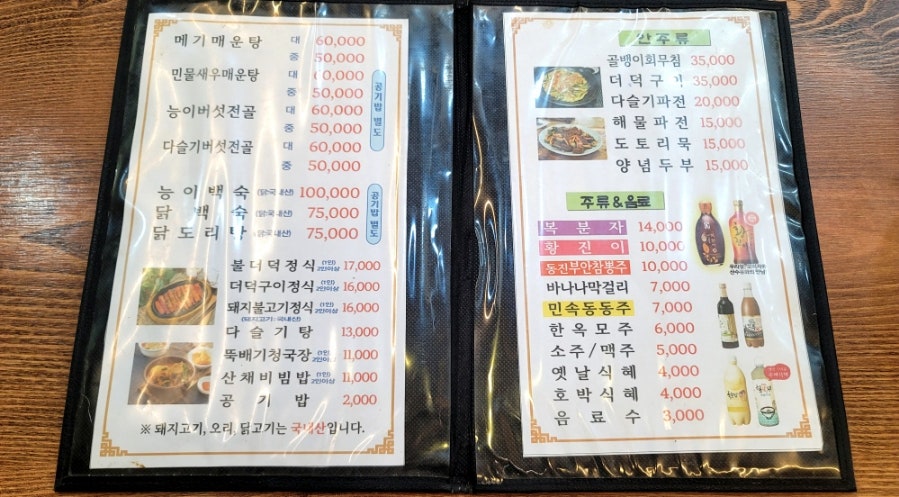 메기매운탕 대 60,000
중 50,000
민물새우매운탕 대 60,000
중 50,000
능이버섯전골 대 60,000
중 50,000
다슬기버섯전골 대 60,000
중 50,000
공기밥 별도
능이백숙 (닭:국내산) 100,000
닭백숙 (닭:국내산) 75,000
닭도리탕 (닭:국내산) 75,000
공기밥 별도
불더덕정식 (1인) 2인이상 17,000
더덕구이정식 (1인) 2인이상 16,000
돼지불고기정식 (1인) 2인이상 16,000
(돼지고기:국내산)
다슬기탕 13,000
뚝배기청국장 (1인) 2인이상 11,000
산채비빔밥 (1인) 2인이상 11,000
공기밥 2,000
※ 돼지고기, 오리, 닭고기는 국내산입니다.
안주류
골뱅이회무침 35,000
더덕구이 35,000
다슬기파전 20,000
해물파전 15,000
도토리묵 15,000
양념두부 15,000
주류&음료
복분자 14,000
황진이 10,000
동진부안참뽕주 10,000
바나나막걸리 7,000
민속동동주 7,000
한옥모주 6,000
소주/맥주 5,000
옛날식혜 4,000
호박식혜 4,000
음료수 3,000